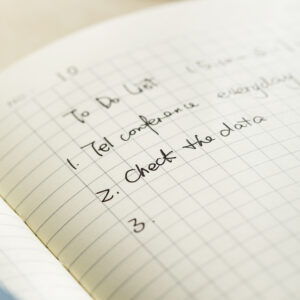 10
To Do List (Sun-S
1. Tel conference everyday
2. Check the data
3.